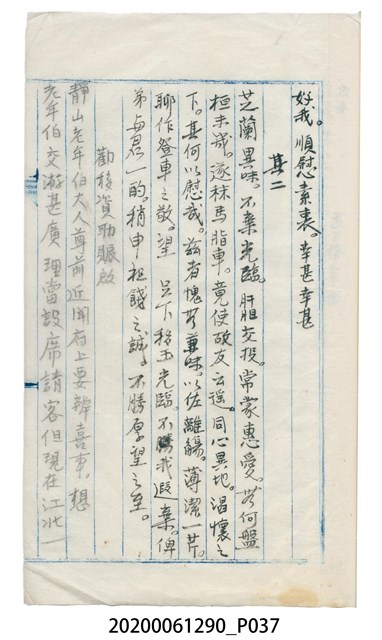 好我。順慰素衷。幸甚幸甚
其二
芝蘭異味。不棄光臨。肝胆交投。常蒙惠愛。若何盤
桓未幾。遂秣馬脂車。竟使故友云遥。同心異地。渴懷之
下。其何以慰哉。兹者愧無兼味。以佐離觴。薄潔一芹。
聊作登車之敬。望 足下移玉光臨。不我遐棄。俾
弟 的。稍申祖餞之誠。不勝厚望之至。
勸移資助賑啟
靜山老年伯大人尊前近聞府上要辦喜事。想
老年伯交游甚廣 理當設席請客但現在江北一
20200061290_P037